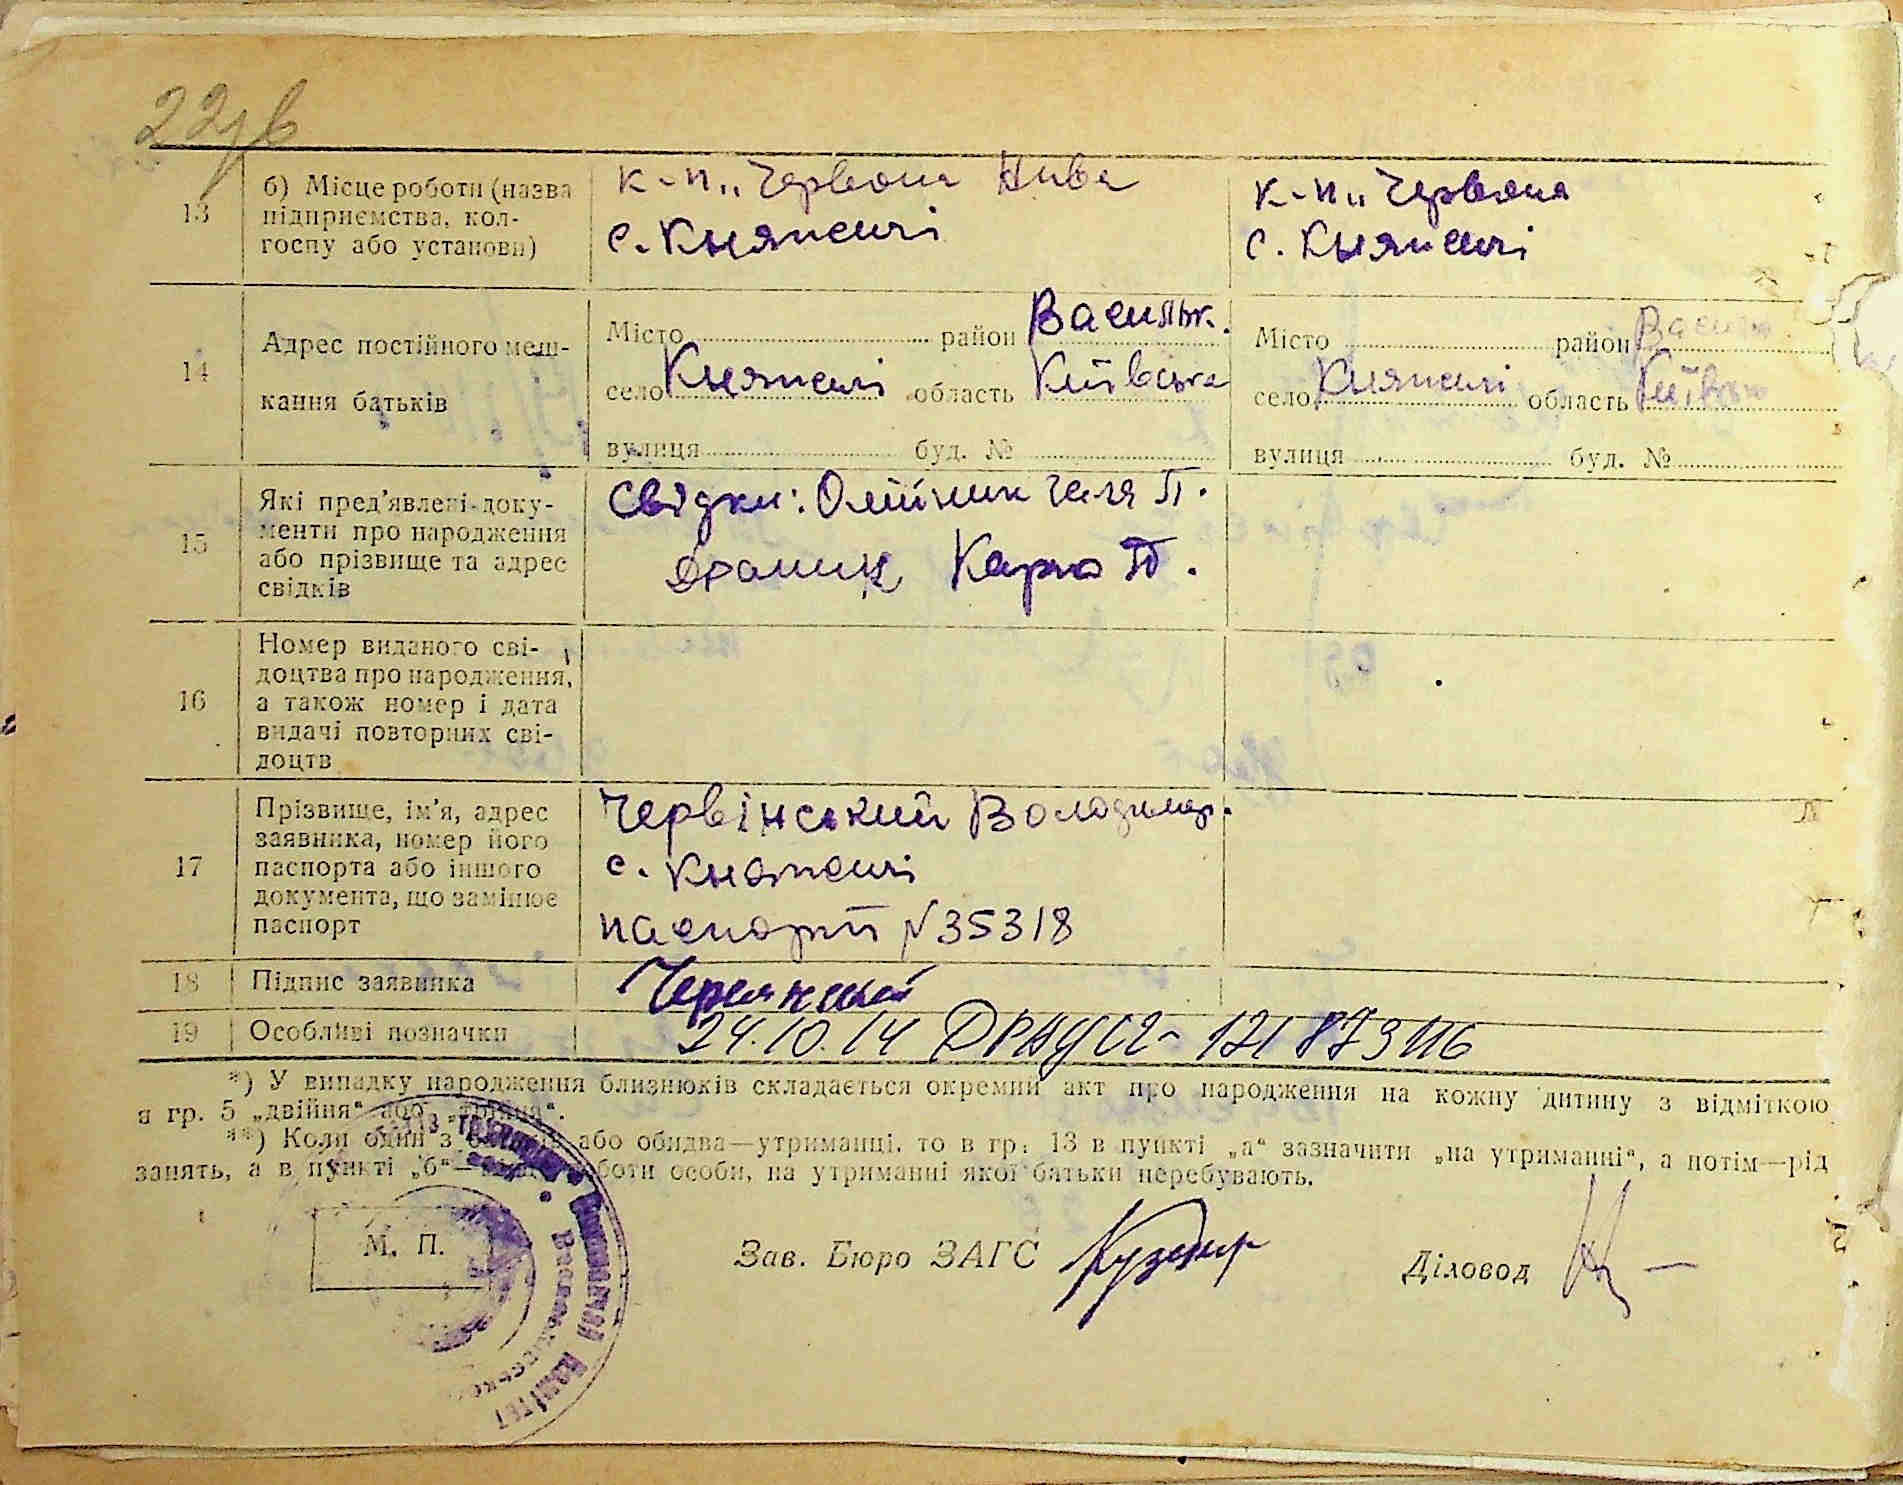 13
б) Місце роботи (назва
підприємства, кол-
госпу або установи)
к-п „Червона Нива
с. Княжичі
к-п „Червона
с. Княжичі
14
Адрес постійного меш-
кання батьків
Місто район Васильк.
село Княжичі область Київська
вулиця буд. №
Місто район
село Княжичі область Київськ
вулиця буд. №
15
Які пред'явлені доку-
менти про народження
або прізвище та адрес
свідків
Свідки: Олійник Галя П.
Карпо П.
16
Номер виданого сві-
доцтва про народження,
а також номер і дата
видачі повторних сві-
доцтв
17
Прізвище, ім'я, адрес
заявника, номер його
паспорта або іншого
документа, що замінює
паспорт
Червінський Володимир.
с. Княжичі
паспорт №35318
18
Підпис заявника
19
Особливі позначки
24.10.14
*) У випадку народження близнюків складається окремий акт про народження на кожну дитину з відміткою
в гр. 5 „двійня“ або „трійня“.
**) Коли один з батьків або обидва—утриманці, то в гр. 13 в пункті „а“ зазначити „на утриманні“, а потім—рід
занять, а в пункті „б“—місце роботи особи, на утриманні якої батьки перебувають.
М. П.
Зав. Бюро ЗАГС
Діловод